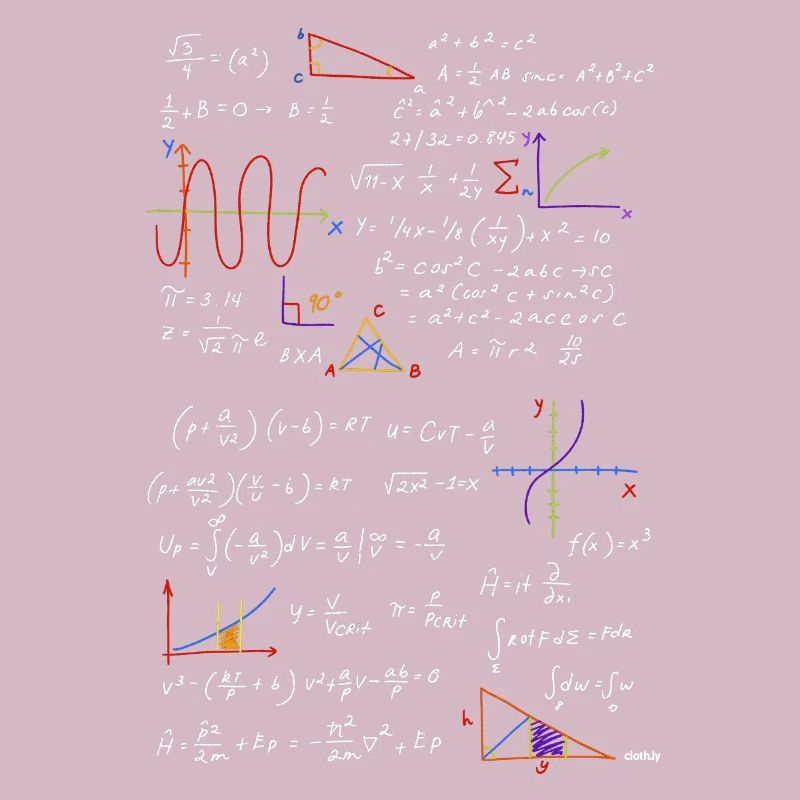 √3/4 = (a²)
b
c
a
a² + b² = c²
A = 1/2 AB sinc = A²+B²+C²
1/2 + B = 0 → B = 1/2
ĉ² = â² + b^² - 2ab cos(c)
27/32 = 0.845
y
x
√11-x 1/x + 1/2y Σ n
y
x
Y = 1/4x - 1/8 (1/xy) + x² = 10
b² = cos²C - 2abc → sc
= a² (cos² c + sin²c)
= a² + c² - 2acc os C
π = 3.14
90°
Z = 1/√2π e
BXA
C
A
B
A = πr2 10/25
(p + a/v²) (v-b) = RT
u = CvT - a/v
y
x
(p + av2/v²)(v/v - b) = RT
√2x² - 1 = x
Up = ∫ ∞ v (-a/v²)dv = a/v | ∞ v = -a/v
f(x) = x³
Ĥ = it ∂/∂xi
y = V/VCRit
π = P/PCRit
∫ Σ Rot F dΣ = Fdr
v³ - (RT/p + b) v² + a/p v - ab/p = 0
∫ dw = ∫ w
Ĥ = p̂²/2m + Ep = -ħ²/2m ∇² + Ep
h
y
cloth.ly